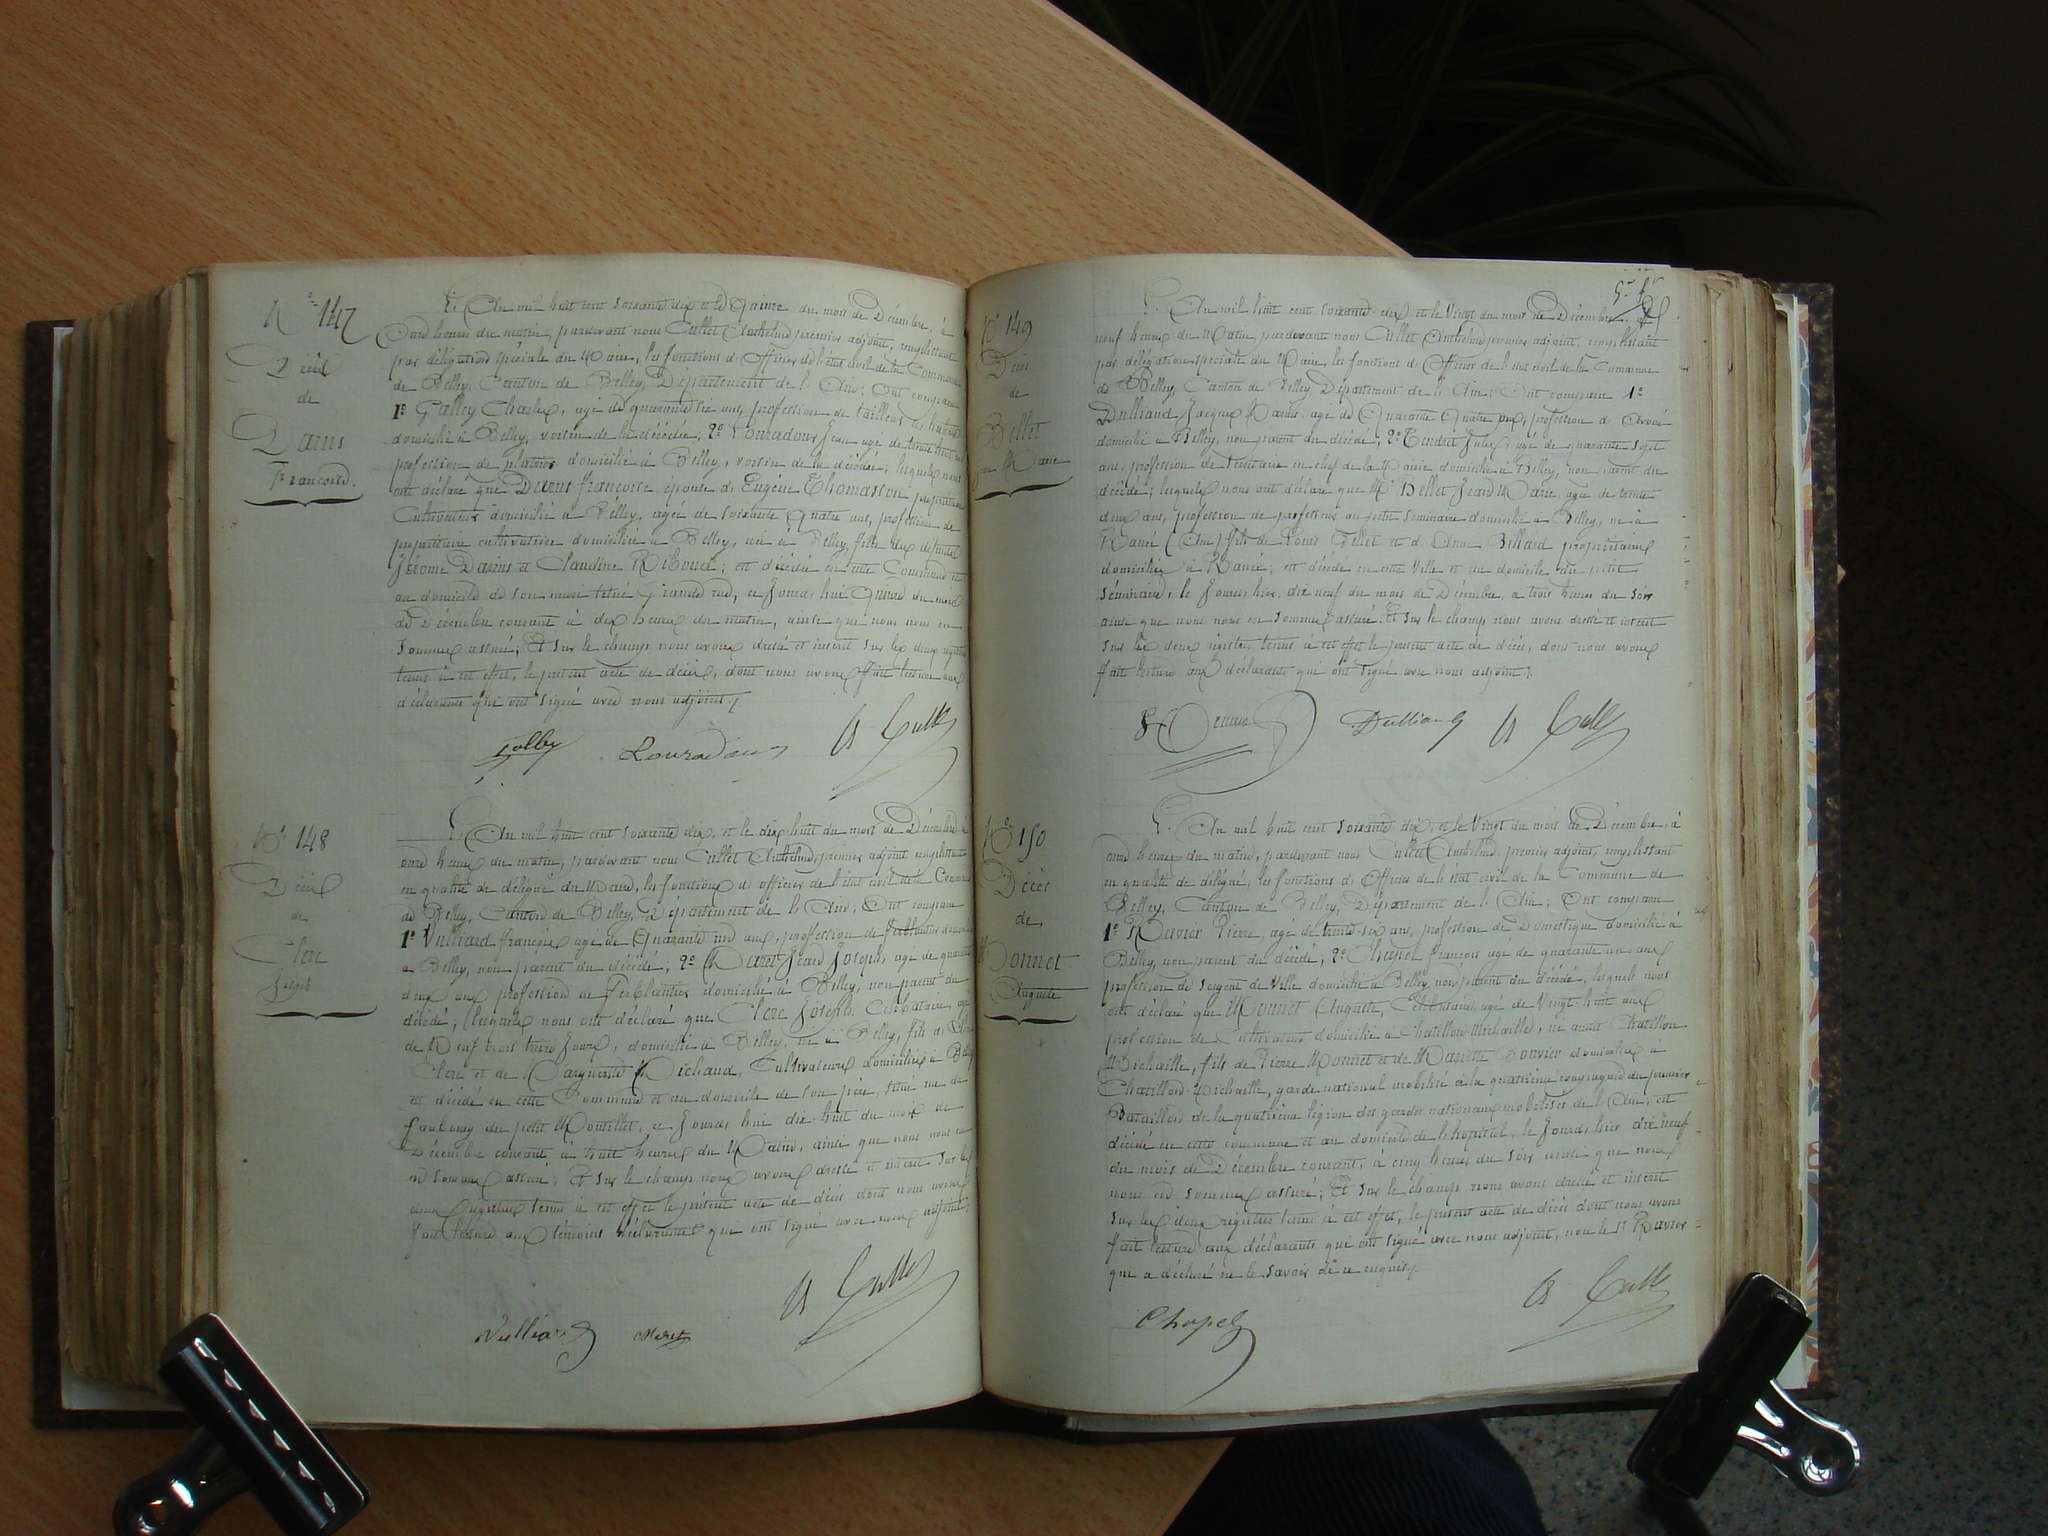 N° 147
Décès
de
Darus
Françoise.
L'An mil huit cent soixante dix et le Quinze du mois de Décembre, à
Onze heures du matin, pardevant nous Cullet Anthelme premier adjoint, remplissant
par délégation spéciale du Maire, les fonctions d'Officier de l'état civil de la Commune
de Belley, Canton de Belley, Département de l'Ain; Ont comparu
1° Galley Charles, agé de quarante ans, profession de tailleur d'habits
domicilié à Belley, voisin de la décédée; 2° Louradour Jean agé de trente huit ans
profession de platrier domicilié à Belley, voisin de la décédée; lesquels nous
ont déclaré que Darus françoise épouse de Eugène Thomasson propriétaire
Cultivateur domicilié à Belley, agée de soixante Quatre ans, profession de
propriétaire cultivatrice domiciliée à Belley, née à Belley, fille des défunts
Jérôme Darus et Claudine Ribouel; est décédée en cette Commune et
au domicile de son mari situé Grande rue, ce Jourd'hui Quinze du mois
de Décembre courant à dix heures du matin, ainsi que nous nous en
sommes assuré; Et sur le champ nous avons dressé et inscrit sur les deux registres
tenus à cet effet, le présent acte de décès, dont nous avons fait lecture aux
déclarants qui ont signé avec nous adjoint.
Galley Louradour A Cullet
N° 148
Décès
de
Clerc
Joseph
L'An mil huit cent soixante dix, et le dix huit du mois de Décembre à
onze heures du matin, pardevant nous Cullet Anthelme, premier adjoint remplissant
en qualité de délégué du Maire, les fonctions d'officier de l'état civil de la Commune
de Belley, Canton de Belley, Département de l'Ain; Ont comparu
1° Vulliard françois agé de Quarante ans, profession de ferblantier domicilié
à Belley, non parent du décédé; 2° Maret Jean Joseph, agé de quarante
deux ans profession de Ferblantier domicilié à Belley, non parent du
décédé; lesquels nous ont déclaré que Clerc Joseph, Célibataire, agé
de Neuf mois treize jours, domicilié à Belley, né à Belley, fils de
Clerc et de Marguerite Michaud, Cultivateurs domiciliés à Belley
est décédé en cette Commune et au domicile de son père, situé rue du
faubourg du petit Moutillet, ce Jourd'hui dix huit du mois de
Décembre courant à huit heures du Matin, ainsi que nous nous
en sommes assuré; Et sur le champ nous avons dressé et inscrit sur les
deux Registres tenus à cet effet le présent acte de décès dont nous avons
fait lecture aux témoins déclarants que ont signé avec nous adjoint;
A Cullet
Vulliard Maret
N° 149
Décès
de
Bellet
jean Marie
L'An mil huit cent soixante dix et le Vingt du mois de Décembre, à
neuf heures du Matin, pardevant nous Cullet Anthelme premier adjoint, remplissant
par délégation spéciale du Maire, les fonctions d'Officier de l'état civil de la Commune
de Belley, Canton de Belley, Département de l'Ain; Ont comparu 1°
Dulliand Jacques Marin, agé de Quarante Quatre ans, profession d'Avoué
domicilié à Belley, non parent du décédé; 2° Tendret Jules, agé de quarante sept
ans, profession de secrétaire en chef de la Mairie domicilié à Belley, non parent du
décédé; lesquels nous ont déclaré que Mr Bellet Jean Marie, agé de trente
deux ans, profession de professeur au petit séminaire domicilié à Belley, né à
Rancé (Ain) fils de Louis Bellet et d'Anne Billard propriétaires
domiciliés à Rancé; est décédé en cette Ville et au domicile du petit
séminaire, le Jourd'hier, dix neuf du mois de Décembre, à trois heures du soir
ainsi que nous nous en sommes assuré. Et sur le champ nous avons dressé et inscrit
sur les deux registres tenus à cet effet le présent acte de décès, dont nous avons
fait lecture aux déclarants qui ont signé avec nous adjoint.
Dulliand A Cullet
N° 150
Décès
de
Monnet
Auguste
L'An mil huit cent soixante dix, et le Vingt du mois de Décembre, à
onze heures du matin, pardevant nous Cullet Anthelme, premier adjoint, remplissant
en qualité de délégué, les fonctions d'Officier de l'état civil de la Commune de
Belley, Canton de Belley, Département de l'Ain; Ont comparu
1° Ravier Pierre, agé de trente-six ans, profession de Domestique domicilié à
Belley, non parent du décédé; 2° Chapel françois agé de quarante un ans
profession de Sergent de Ville domicilié à Belley non parent du décédé, lesquels nous
ont déclaré que Monnet Auguste, Célibataire, agé de Vingt-huit ans
profession de Cultivateur domicilié à Chatillon-Michaille, né audit Chatillon
Michaille, fils de Pierre Monnet et de Mariette Bouvier domiciliés à
Chatillon-Michaille, garde national mobilisé à la quatrième compagnie du premier
Bataillon de la quatrième légion des gardes nationaux mobilisés de l'Ain; est
décédé en cette commune et au domicile de l'hopital, le Jourd'hier dix neuf
du mois de Décembre courant, à cinq heures du soir ainsi que nous
nous en sommes assuré; Et sur le champ nous avons dressé et inscrit
sur les deux registres tenus à cet effet, le présent acte de décès dont nous avons
fait lecture aux déclarants qui ont signé avec nous adjoint, non le Sr Ravier
qui a déclaré ne le savoir de ce enquis.
Chapel A Cullet